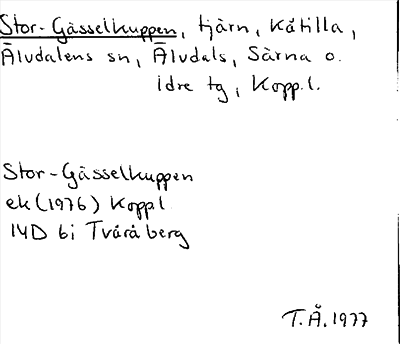 Stor-Gässelkuppen, tjärn, Kåtilla,
Älvdalens sn, Älvdals, Särna o.
Idre tg, Kopp.l.
Stor-Gässelkuppen
ek (1976) Koppl
14D 6i Tvåråberg
T.Å. 1977